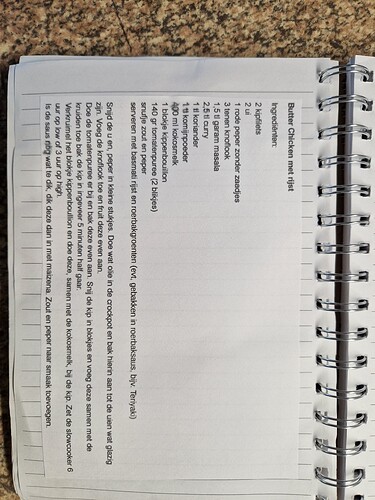 Butter Chicken met rijst
Ingrediënten:
2 kipfilets
2 ui
1 rode peper zonder zaadjes
3 tenen knoflook
1,5 tl garam masala
2,5 tl curry
1 tl koriander
1 tl komijnpoeder
400 ml kokosmelk
1 blokje kippenbouillon
140 gr tomatenpuree (2 blikjes)
snufje zout en peper
serveren met basmati rijst en roerbakgroenten (evt. gebakken in roerbaksaus, bijv. Teriyaki)
Snijd de ui en, peper in kleine stukjes. Doe wat olie in de crockpot en bak hierin aan tot de uien wat glazig
zijn. Voeg de knoflook toe en fruit deze even aan.
Doe de tomatenpuree er bij en bak deze even aan. Snij de kip in blokjes en voeg deze samen met de
kruiden toe bak de kip in ongeveer 5 minuten half gaar.
Verkruimel het blokje kippenbouillon en doe deze, samen met de kokosmelk, bij de kip. Zet de slowcooker 6
uur op low of 3 uur op high.
Is de saus nog wat te dik, dik deze dan in met maizena. Zout en peper naar smaak toevoegen.